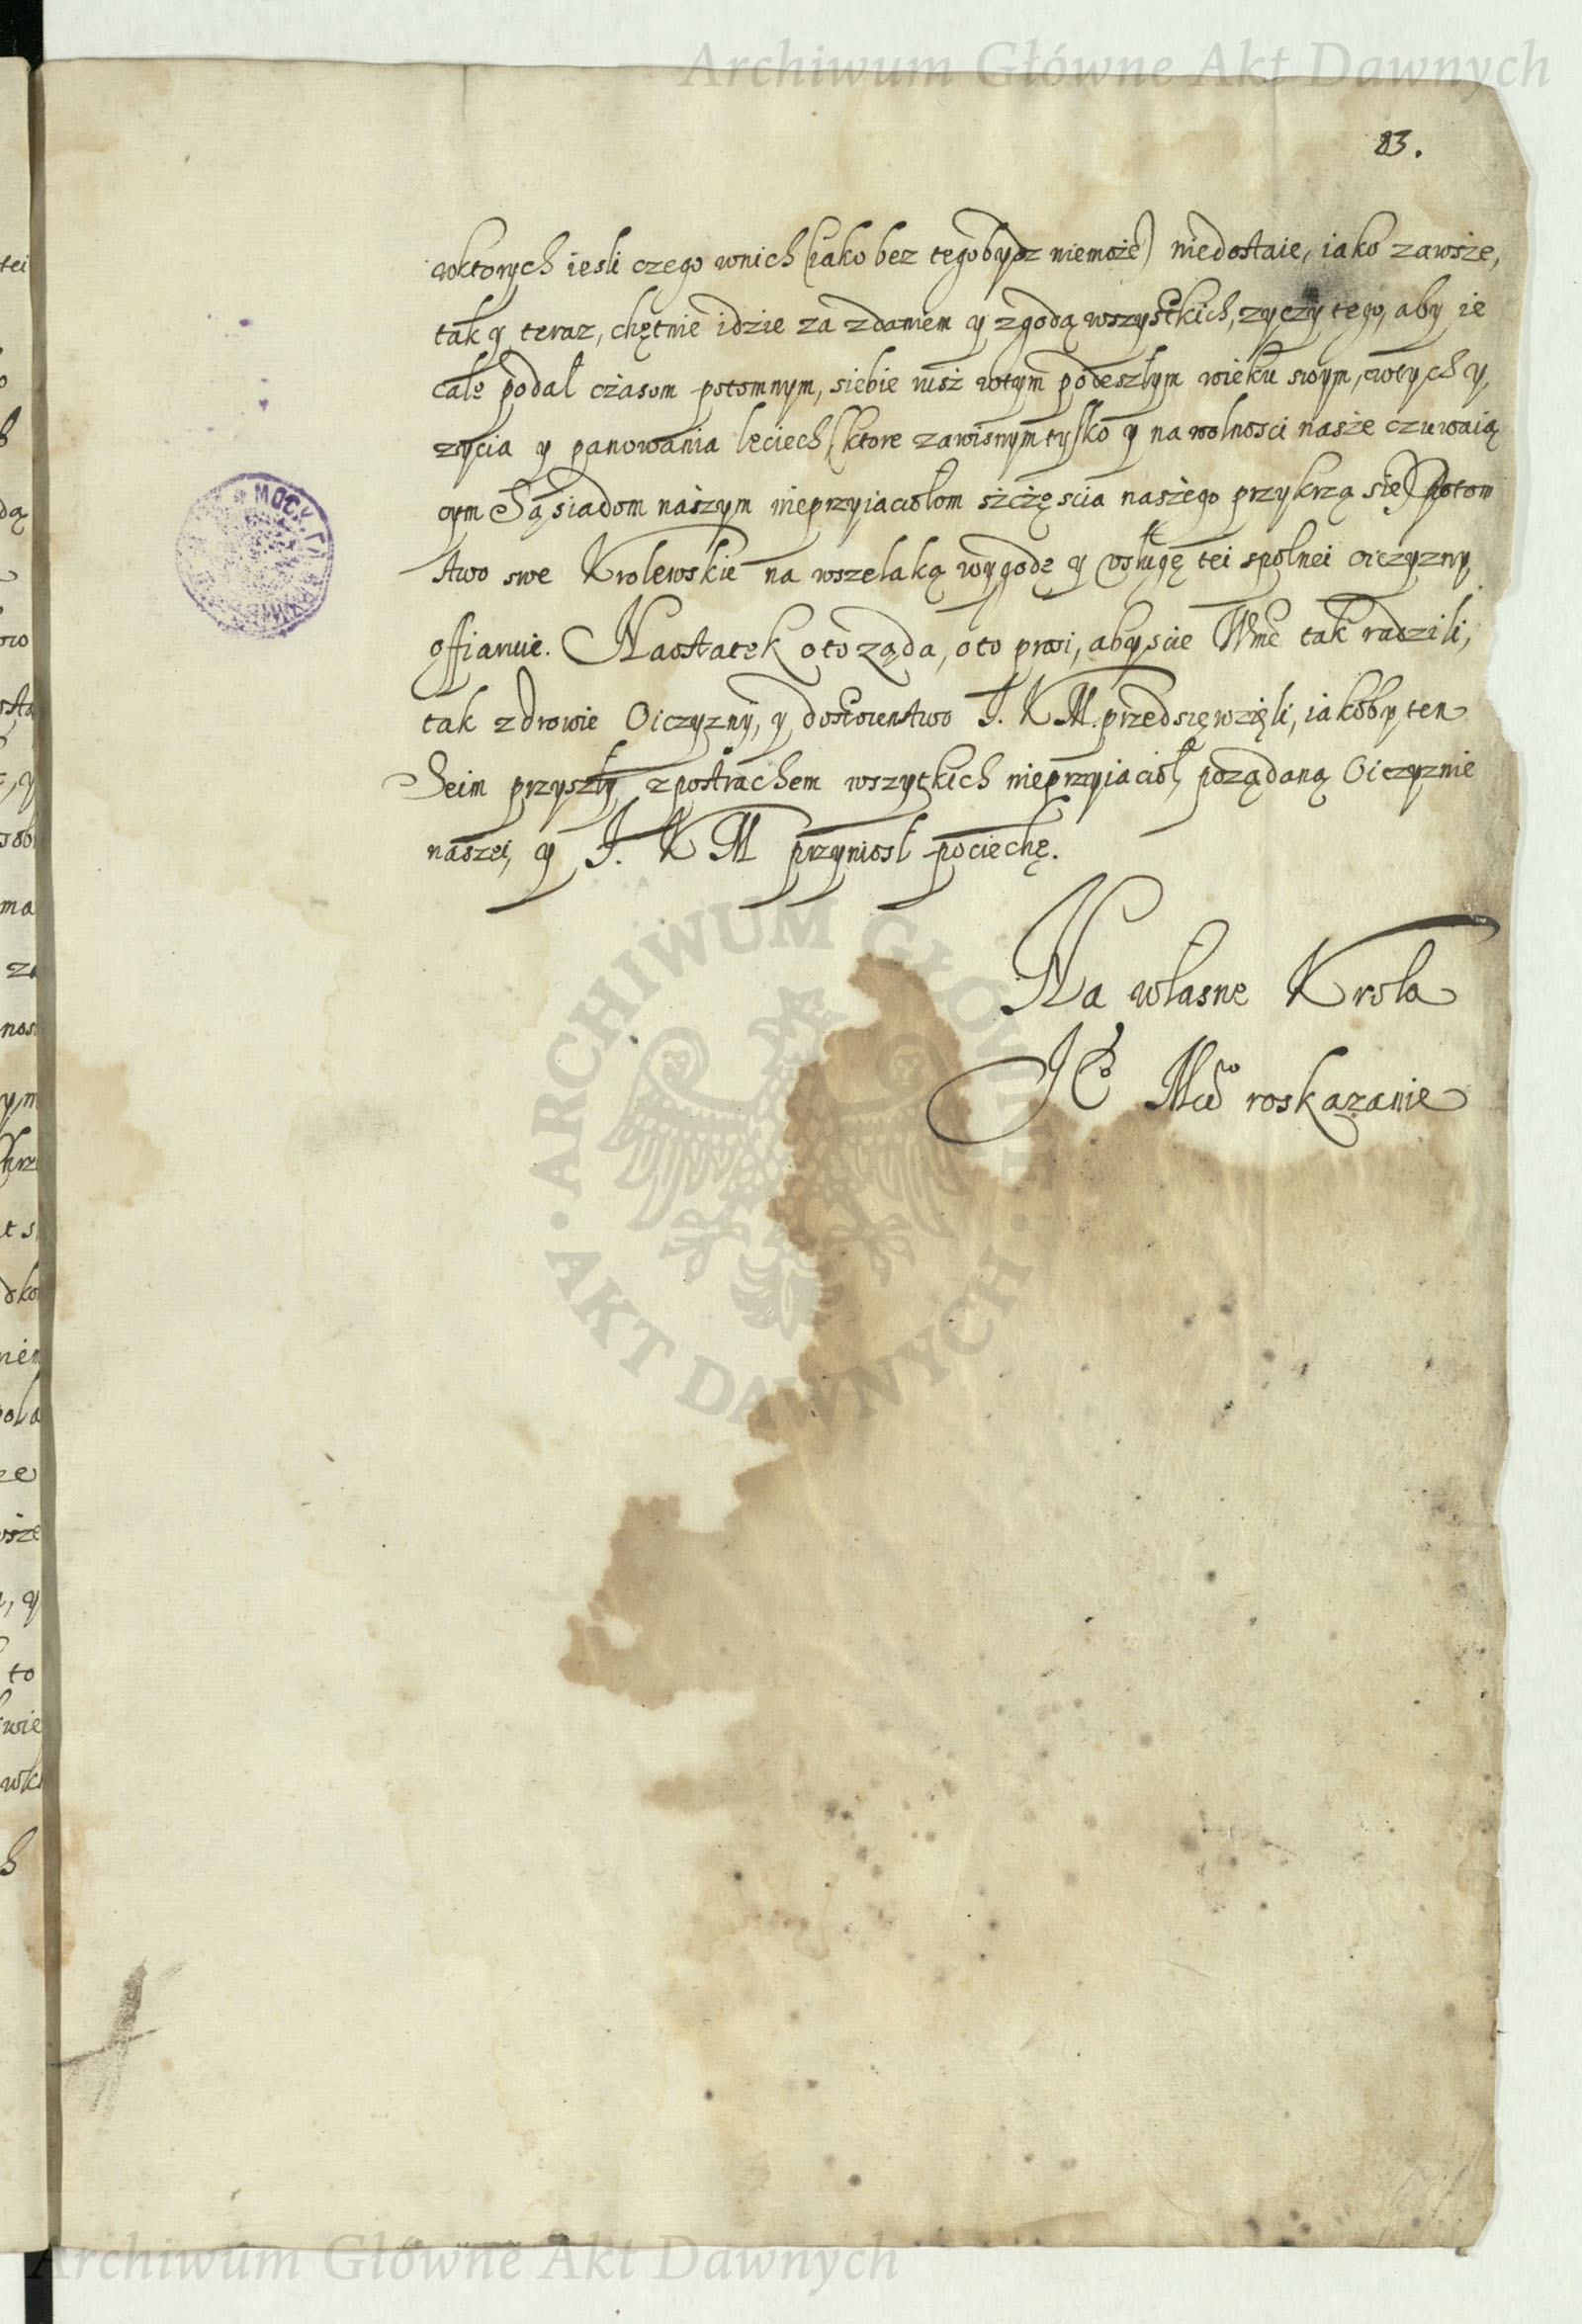 Archiwum Główne Akt Dawnych
83.
wktorych iesli czego wnich (iako bez tego bydz niemoże) niedostaie, iako zawsze,
tak y teraz, chętnie idzie za zdaniem y zgodą wszystkich, zyczy tego, aby ie
całe podał czasom potomnym, siebie iusz wtym podeszłym wieku swym, wtych y
zycia y panowania leciech (ktore zawisnym tylko y na wolnosci nasze czuwaią
cym Sąsiadom naszym nieprzyiaciołom szczęscia naszego przykrzą się) potom
stwo swe Krolewskie na wszelaką wygodę y vsługę tei spolnei oiczyzny
offiaruie. Naostatek o to ząda, o to prosi, abyscie Wmć tak radzili,
tak zdrowie Oiczyzny, y dostoienstwo J. K M. przedsięwzięli, iakoby ten
Seim przyszły zpostrachem wszytkich nieprzyiacioł, poządaną Oiczyznie
naszei, y J. K M przyniosł pociechę.
Na własne Krola
J Eº Mći roskazanie
ARCHIWUM GŁÓWNE
AKT DAWNYCH
Archiwum Główne Akt Dawnych